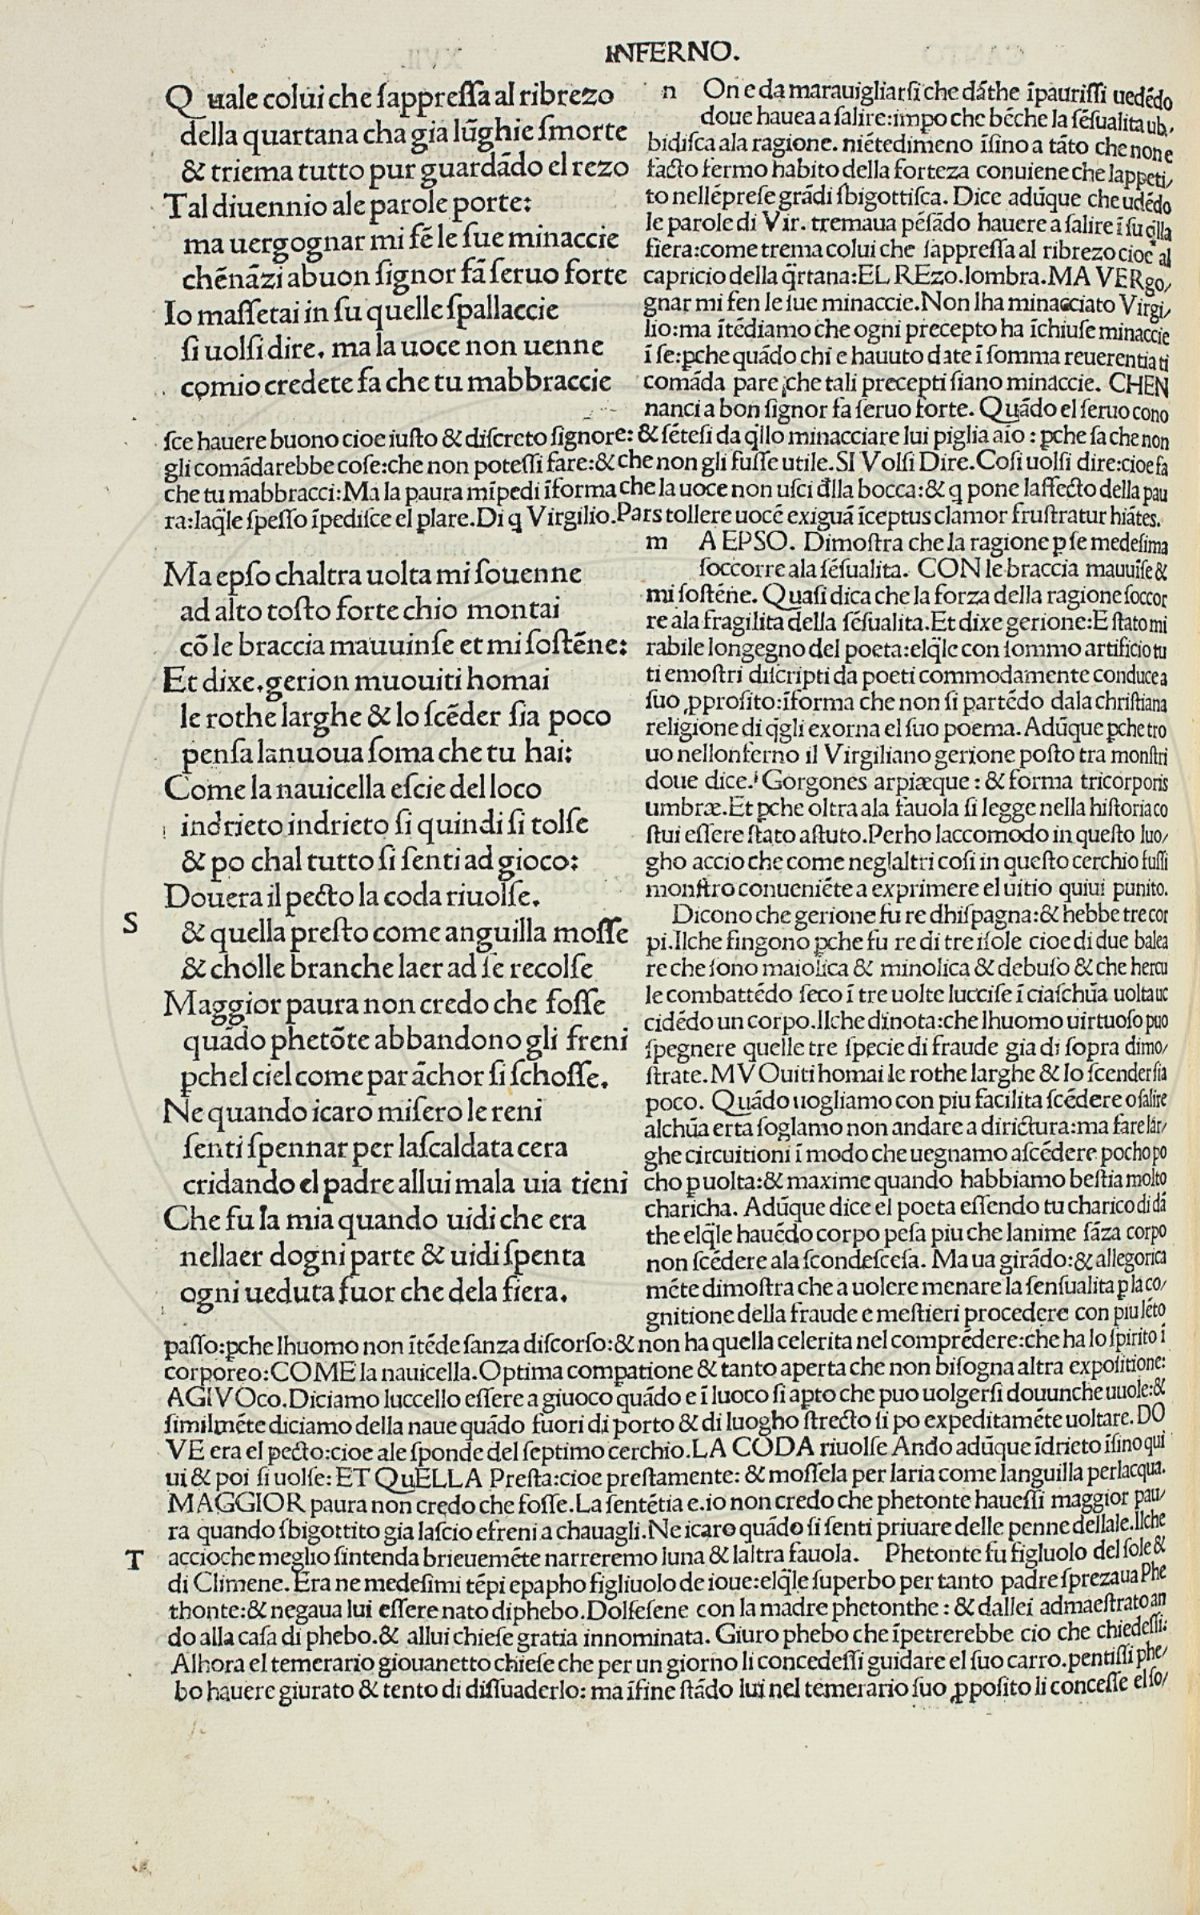 INFERNO.
Quale colui che ſappreſſa al ribrezo
della quartana cha gia lũghie ſmorte
& triema tutto pur guardãdo el rezo
Tal diuennio ale parole porte:
ma uergognar mi fẽ le ſue minaccie
chẽnãzi abuon ſignor fã ſeruo forte
Io maſſetai in ſu quelle ſpallaccie
ſi uolſi dire. ma la uoce non uenne
comio credete fa che tu mabbraccie
n One da marauigliarſi che dãthe ĩpauriſſi uedẽdo
doue hauea a ſalire:impo che bẽche la ſẽſualita ub,
bidiſca ala ragione. niẽtedimeno ĩſino a tãto che non e
facto fermo habito della forteza conuiene che lappeti/
to nellẽpreſe grãdi ſbigottiſca. Dice adũque che udẽdo
le parole di Vir. tremaua pẽſãdo hauere a ſalire ĩ ſu q̃lla
fiera:come trema colui che ſappreſſa al ribrezo cioe al
capricio della q̃rtana:EL REzo.lombra.MA VERgo/
gnar mi fen le ſue minaccie.Non lha minacciato Virgi/
lio:ma ĩtẽdiamo che ogni precepto ha ĩchiuſe minaccie
ĩ ſe:ꝑche quãdo chi e hauuto da te ĩ ſomma reuerentia ti
comãda pare che tali precepti ſiano minaccie. CHEN
nanci a bon ſignor fa ſeruo forte. Quãdo el ſeruo cono
ſce hauere buono cioe iuſto & diſcreto ſignore: & ſẽteſi da q̃llo minacciare lui piglia aio : ꝑche ſa che non
gli comãdarebbe coſe:che non poteſſi fare:& che non gli fuſſe utile.SI VOlſi Dire.Coſi uolſi dire:cioe fa
che tu mabbracci:Ma la paura mĩpedi ĩforma che la uoce non uſci dl̃la bocca:& q̃ pone laffecto della pau
ra:laq̃le ſpeſſo ĩpediſce el ꝑlare.Di q̃ Virgilio.Pars tollere uocẽ exiguã ĩceptus clamor fruſtratur hiãtes.
Ma epſo chaltra uolta mi ſouenne
ad alto toſto forte chio montai
cõ le braccia mauuinſe et mi ſoſtẽne:
Et dixe.gerion muouiti homai
le rothe larghe & lo ſcẽder ſia poco
penſa la nuoua ſoma che tu hai:
Come la nauicella eſcie del loco
indrieto indrieto ſi quindi ſi tolſe
& po chal tutto ſi ſenti ad gioco:
Douera il pecto la coda riuolſe.
S
& quella preſto come anguilla moſſe
& cholle branche laer ad ſe recolſe
Maggior paura non credo che foſſe
quãdo phetõte abbandono gli freni
ꝑchel ciel come par ãchor ſi ſchoſſe.
Ne quando icaro miſero le reni
ſenti ſpennar per laſcaldata cera
cridando el padre allui mala uia tieni
Che fu la mia quando uidi che era
nellaer dogni parte & uidi ſpenta
ogni ueduta fuor che dela fiera.
m A EPSO. Dimoſtra che la ragione ꝑ ſe medeſima
ſoccorre ala ſẽſualita. CON le braccia mauuiſe &
mi ſoſtẽne. Quaſi dica che la forza della ragione ſoccor
re ala fragilita della ſẽſualita.Et dixe gerione:E ſtato mi
rabile longegno del poeta:elq̃le con ſommo artificio tu
ti emoſtri diſcripti da poeti commodamente conduce a
ſuo ꝓpoſito:ĩforma che non ſi partẽdo dala chriſtiana
religione di q̃gli exorna el ſuo poema.Adũque ꝑche tro
uo nellonferno il Virgiliano gerione poſto tra monſtri
doue dice. Gorgones arpiæque : & forma tricorporis
umbræ.Et ꝑche oltra ala fauola ſi legge nella hiſtoria co
ſtui eſſere ſtato aſtuto.Perho laccomodo in queſto luo/
gho accio che come neglaltri coſi in queſto cerchio fuſſi
monſtro conueniẽte a exprimere el uitio quiui punito.
Dicono che gerione fu re dhiſpagna:& hebbe tre cor
pi.Ilche fingono ꝑche fu re di tre iſole cioe di due balea
re che ſono maiolica & minolica & debuſo & che hercu
le combattẽdo ſeco ĩ tre uolte lucciſe ĩ ciaſchũa uolta uc
cidẽdo un corpo.Ilche dinota:che lhuomo uirtuoſo puo
ſpegnere quelle tre ſpecie di fraude gia di ſopra dimo/
ſtrate.MVOuiti homai le rothe larghe & lo ſcender ſia
poco. Quãdo uogliamo con piu facilita ſcẽdere o ſalire
alchũa erta ſoglamo non andare a dirictura:ma fare lar/
ghe circuitioni ĩ modo che uegnamo aſcẽdere pocho po
cho ꝑ uolta:& maxime quando habbiamo beſtia molto
charicha. Adũque dice el poeta eſſendo tu charico di dã
the elq̃le hauẽdo corpo peſa piu che lanime ſãza corpo
non ſcẽdere ala ſcondeſceſa. Ma ua girãdo:& allegorica
mẽte dimoſtra che a uolere menare la ſenſualita ꝑ la co/
gnitione della fraude e meſtieri procedere con piu lẽto
paſſo:ꝑche lhuomo non ĩtẽde ſanza diſcorſo:& non ha quella celerita nel comprẽdere:che ha lo ſpirito ĩ
corporeo:COME la nauicella.Optima compatione & tanto aperta che non biſogna altra expoſitione:
AGIVOco.Diciamo luccello eſſere a giuoco quãdo e ĩ luoco ſi apto che puo uolgerſi douunche uuole:&
ſimilmẽte diciamo della naue quãdo fuori di porto & di luogho ſtrecto ſi po expeditamẽte uoltare.DO
VE era el pecto:cioe ale ſponde del ſeptimo cerchio.LA CODA riuolſe Ando adũque ĩdrieto ĩſino qui
ui & poi ſi uolſe: ET QuELLA Preſta:cioe preſtamente: & moſſela per laria come languilla per lacqua.
MAGGIOR paura non credo che foſſe.La ſentẽtia e.io non credo che phetonte haueſſi maggior pau/
ra quando ſbigottito gia laſcio efreni a chauagli.Ne icaro quãdo ſi ſenti priuare delle penne dellale.Ilche
T
accioche meglio ſintenda brieuemẽte narreremo luna & laltra fauola. Phetonte fu figluolo del ſole &
di Climene.Era ne medeſimi tẽpi epapho figliuolo de ioue:elq̃le ſuperbo per tanto padre ſprezaua Phe
thonte:& negaua lui eſſere nato di phebo.Dolſeſene con la madre phetonthe : & dallei admaeſtrato an
do alla caſa di phebo.& allui chieſe gratia innominata. Giuro phebo che ĩpetrerebbe cio che chiedeſſi:
Alhora el temerario giouanetto chieſe che per un giorno li concedeſſi guidare el ſuo carro.pentiſſi phe/
bo hauere giurato & tento di diſſuaderlo: ma ĩfine ſtãdo lui nel temerario ſuo ꝓpoſito li conceſſe el ſo/